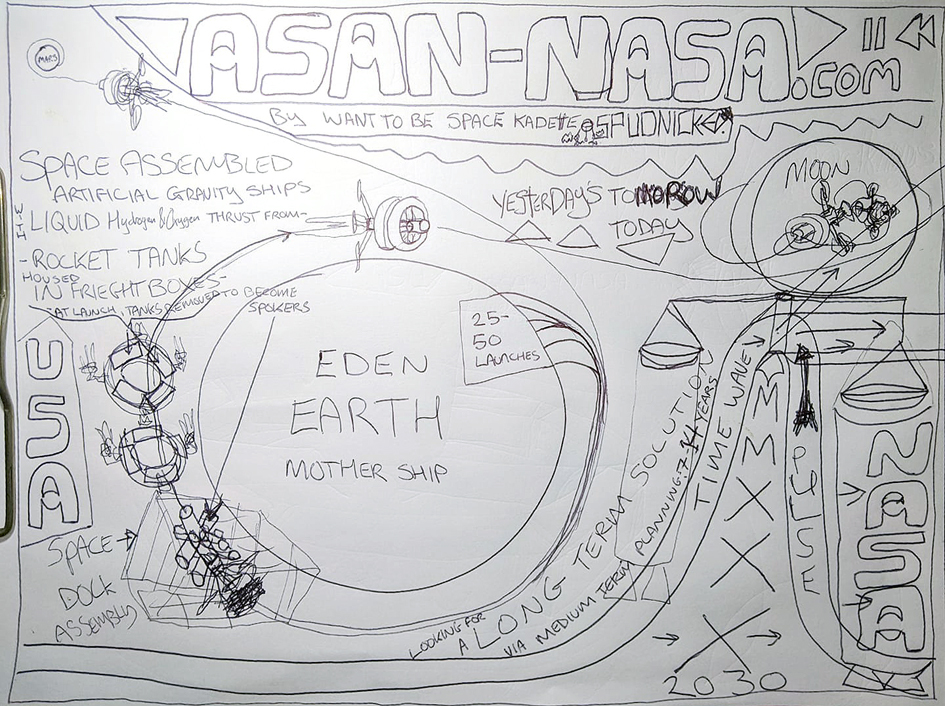 ASAN-NASA.COM
BY WANT TO BE SPACE KADETTE SPUDNICK
MARS
SPACE ASSEMBLED
ARTIFICIAL GRAVITY SHIPS
LIQUID Hydrogen & Oxygen THRUST FROM-
-ROCKET TANKS
HOUSED
IN FRIEGHT BOXES-
-AT LAUNCH, TANKS REMOVED TO BECOME
SPOKERS
YESTERDAY'S TOMOROW
TODAY
MOON
USA
25-
50
LAUNCHES
EDEN
EARTH
MOTHER SHIP
SPACE
DOCK
ASSEMBLY
LOOKING FOR
A LONG TERM SOLUTION
VIA MEDIUM TERM PLANNING:7-14 YEARS
TIME WAVE
MMXXX
PULSE
NASA
2030